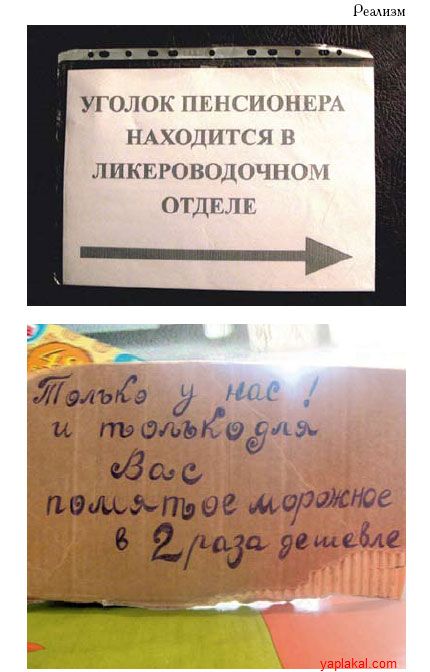 Реализм
УГОЛОК ПЕНСИОНЕРА
НАХОДИТСЯ В
ЛИКЕРОВОДОЧНОМ
ОТДЕЛЕ
Только у нас!
и только для
Вас
помятое морожное
в 2 раза дешевле
yaplakal.com